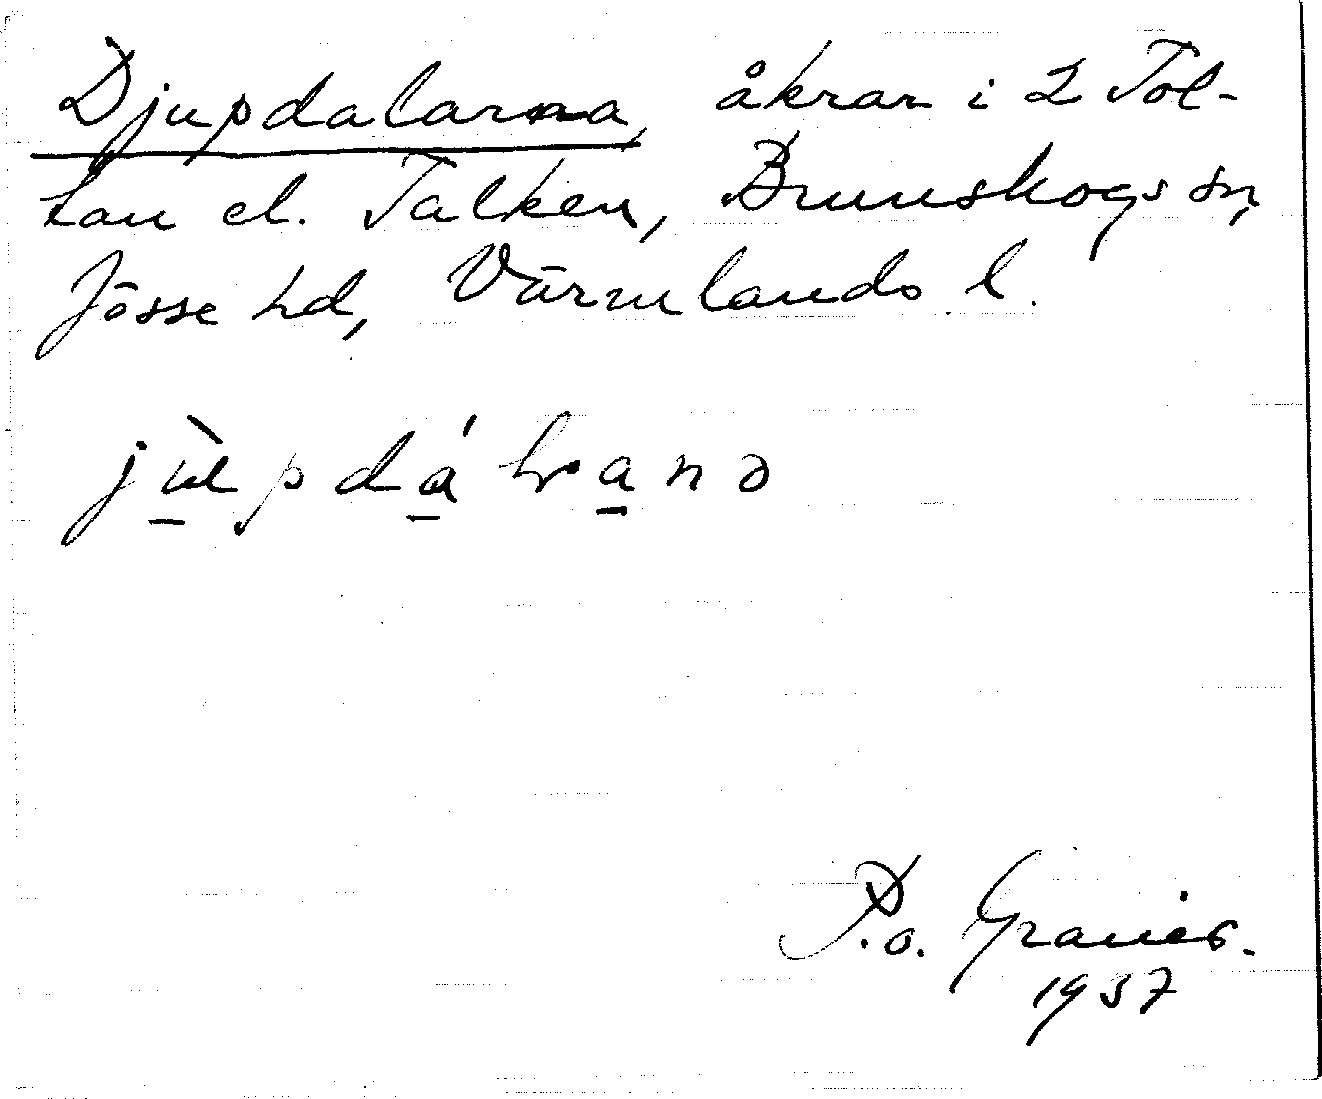 Djupdalarna, åkrar i 2 Tol-
tan el. Talken, Brunskogs sn,
Jösse hd, Värmlands l.
jùpdálanə
P.o. Granér.
1937